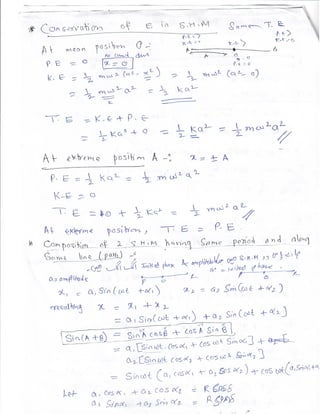 * Conservation of E in S.H.M Same T.E
P.E > P.E >
K.E = 0 K.E > K.E = 0
At mean position O -:
P.E = 0 x = 0
A O B
K.E = 1/2 mω² (a² - x²) = 1/2 mω² (a² - 0)
= 1/2 mω² a² = 1/2 ka²
T.E = K.E + P.E
= 1/2 ka² + 0 = 1/2 ka² = 1/2 mω²a²
At extreme position A -: x = ± A
P.E = 1/2 ka² = 1/2 mω² a²
K.E = 0
T.E = 0 + 1/2 ka² = 1/2 mω² a²
At extreme position, T.E = P.E
* Composition of 2 S.H.M having same period and along
same line (path) -:
a = amplitude
x₁ = a₁ Sin (ωt + α₁) x₂ = a₂ Sin (ωt + α₂)
resulting x = x₁ + x₂
= a₁ Sin (ωt + α₁) + a₂ Sin (ωt + α₂)
Sin (A + B) = Sin A cos B + cos A Sin B
= a₁ [Sin ωt . cos α₁ + cos ωt Sin α₁] +
a₂ [Sin ωt cos α₂ + cos ωt Sin α₂]
= Sin ωt (a₁ cos α₁ + a₂ cos α₂) + cos ωt (a₁ Sin α₁ +
Let a₁ cos α₁ + a₂ cos α₂ = R cos δ
a₁ Sin α₁ + a₂ Sin α₂ = R